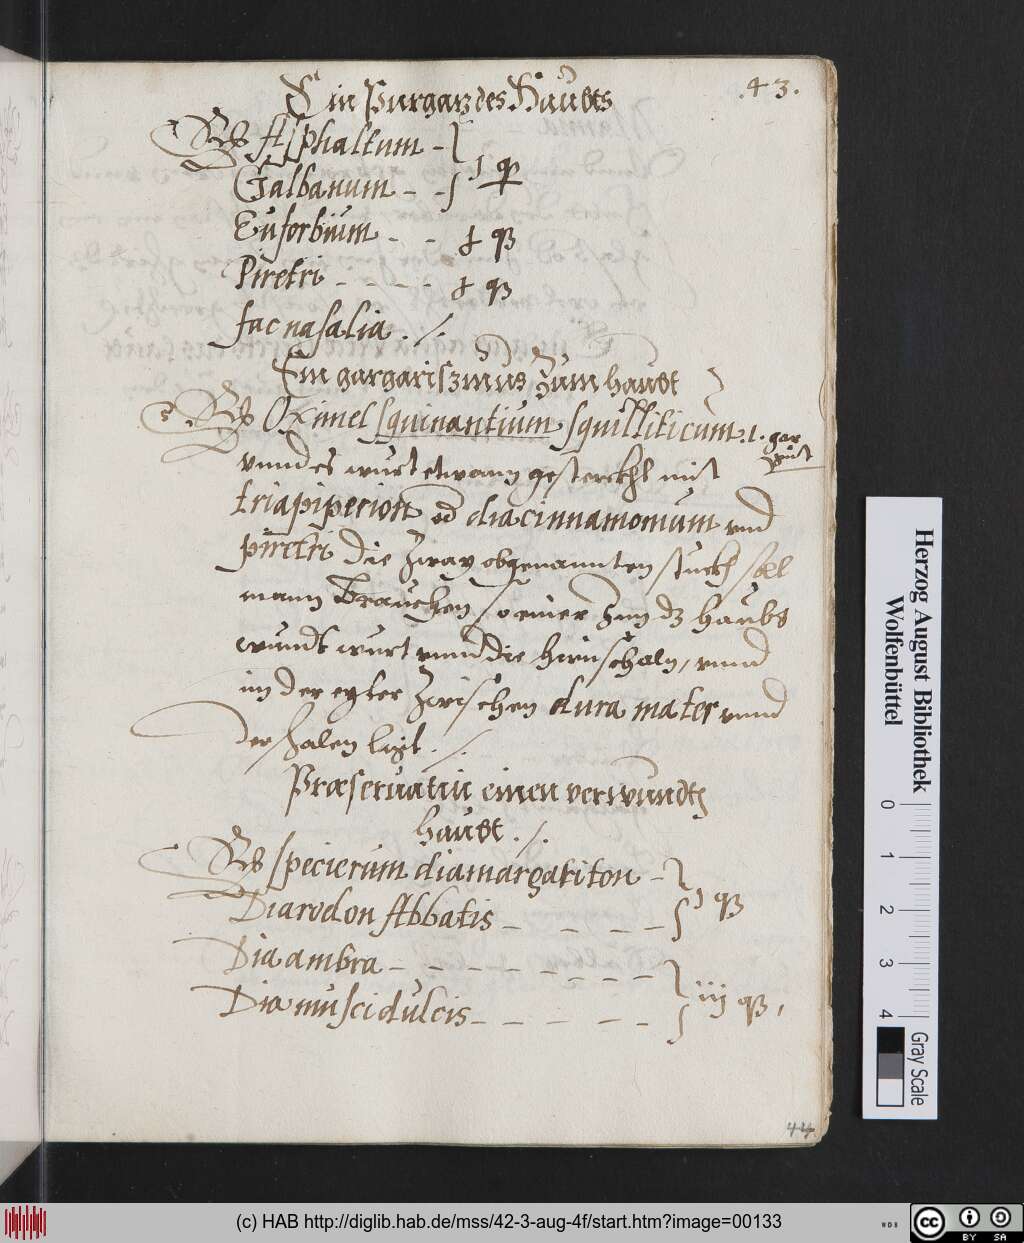 .43.
Ein Purgatz des Haubts
Rc Asphaltum -
Galbanum - - j
Euforbium - -
Piretri - - - -
fac nasalia ./.
Ein gargariszmus Zum haubt
Rc Oximel squinantium squilliticum .1. gar
vnnd es wurt etwann gesterckht mit
triapiperion od diacinnamomum vnd
piretri die Zway obgenannten stuckh sol
mann Brauchen, so einer Inn dz Haubt
wundt wurt vnnd die hirnschaln, vnnd
im der eyter Zwischen dura mater vnnd
der schalen ligt ./.
Præseruatiu einen verwundtn
haubt ./.
Rc specierum diamargariton -
Diarodon Abbatis - - - - j
Diaambra - - - - - - -
Diamusci dulcis - - - - - iij
44
Herzog August Bibliothek
Wolfenbüttel
0 1 2 3 4
Gray Scale
(c) HAB http://diglib.hab.de/mss/42-3-aug-4f/start.htm?image=00133
WDB
cc BY SA